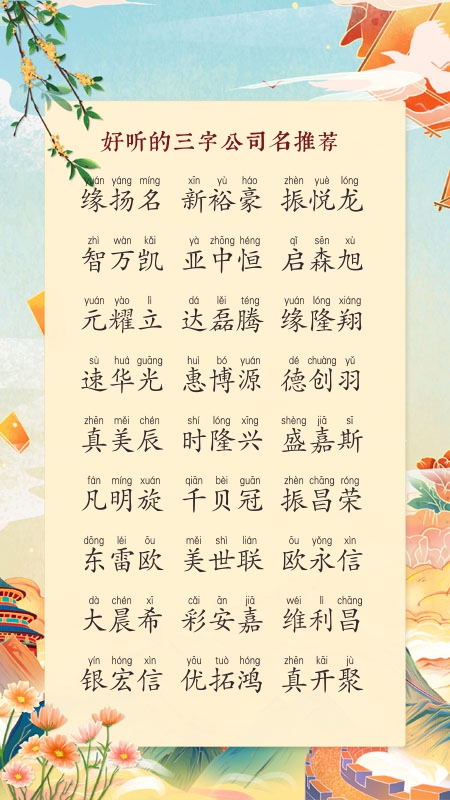 好听的三字公司名推荐
yuán yáng míng xīn yù háo zhèn yuè lóng
缘扬名 新裕豪 振悦龙
zhì wàn kǎi yà zhōng héng qǐ sēn xù
智万凯 亚中恒 启森旭
yuán yào lì dá lěi téng yuán lóng xiáng
元耀立 达磊腾 缘隆翔
sù huá guāng huì bó yuán dé chuàng yǔ
速华光 惠博源 德创羽
zhēn měi chén shí lóng xīng shèng jiā sī
真美辰 时隆兴 盛嘉斯
fán míng xuán qiān bèi guān zhèn chāng róng
凡明旋 千贝冠 振昌荣
dōng léi ōu měi shì lián ōu yǒng xìn
东雷欧 美世联 欧永信
dà chén xī cǎi ān jiā wéi lì chāng
大晨希 彩安嘉 维利昌
yín hóng xìn yōu tuò hóng zhēn kāi jù
银宏信 优拓鸿 真开聚